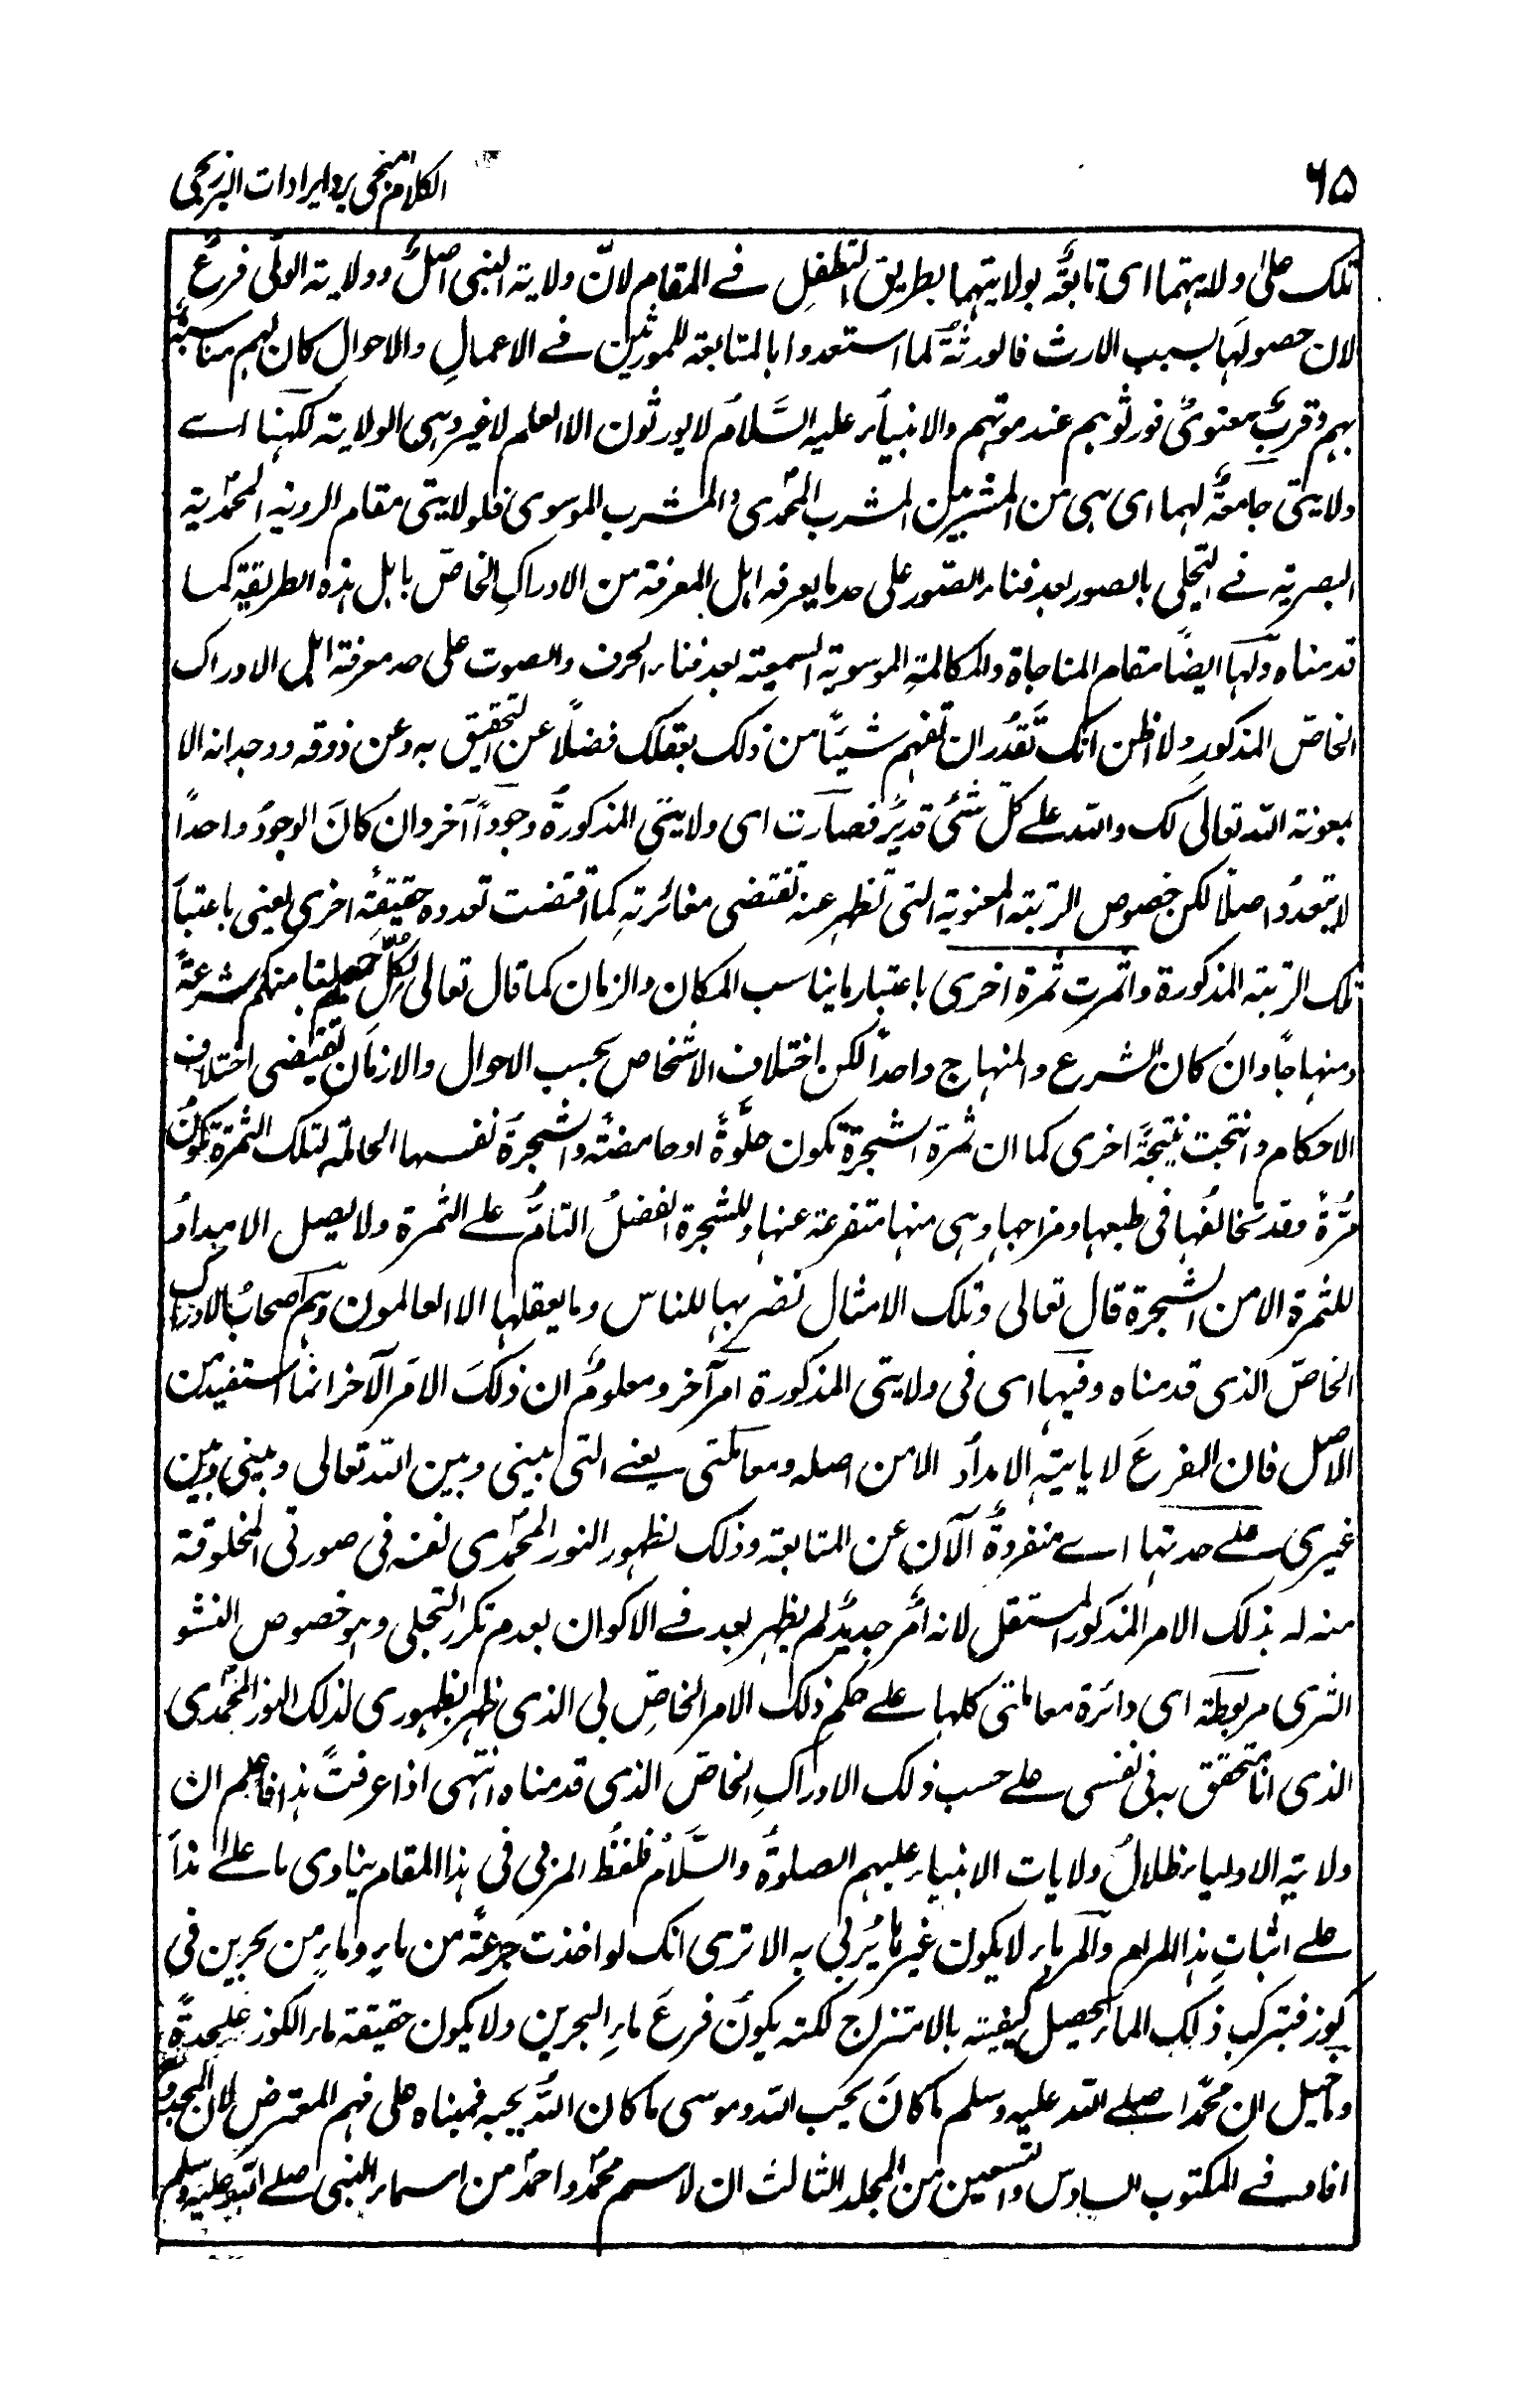 ۶۵ الكلام المنجى برد ايرادات البرزنجى
تلك على ولايتهما اى تابعةٌ بولايتهما بطريق التطفل فے المقام لانّ ولاية النبى اصلٌ وولاية الولى فرعٌ
لان حصولها بسبب الارث فالورثةُ لما استعدوا بالمتابعة للمورثين فے الاعمالِ والاحوالِ كان لهم مناسبةٌ
بهم وقربٌ معنوىٌ فورثوهم عند موتهم والانبياء عليه السَّلامُ لا يورثون الا العلم لا غير وهى الولاية لكنها اے
ولايتى جامعةٌ لهما اى هى من المشربين المشرب المحمدى والمشرب الموسوى فلولايتى مقام الروية المحمدية
البصرية فے التجلى بالصور بعد فناء الصّور على حد ما يعرفه اهل المعرفة من الادراكِ الخاصّ باهل هذه الطريقة كما
قدمناه ولَها ايضًا مقام المناجاة والمكالمةِ الموسوية السمعية بعد فناء الحرف والصوت على حد معرفة اهل الادراك
الخاصّ المذكور ولا اظن انك تَقدُر ان تفهم شيئًا من ذلك بعقلك فضلًا عن التحقيق به وعن ذوقه ووجدانه الا
بمعونة الله تعالى لك والله علے كلّ شئ قديرٌ فصارت اى ولايتى المذكورةُ وجوداً آخر وان كانَ الوجودُ واحداً
لا يتعددُ اصلًا لكن خصوص الرتبة المعنوية التى تظهر عنه تقتضى مغائرتهِ كما اقتضت تعدده حقيقةً اخرى يعنى باعتبار
تلك الرتبة المذكورة واثمرت ثمرة اخرى باعتبار ما يناسب المكان والزمان كما قال تعالى لِكُلٍّ جعلنا منكم شرعةً
ومنهاجًا وان كان الشرع والمنهاج واحداً لكن اختلاف الاشخاص بحسب الاحوال والازمان تقتضى اختلاف
الاحكام وانتجت نتيجةً اخرى كما ان ثمرة الشجرة تكون حلوةً او حامضةً والشجرةَ نفسها الحاملة لتلك الثمرة تكونُ
مُرّةً وقد تخالفُها فى طبعها ومزاجها وهى منها متفرعة عنها وللشجرة الفضلُ التامُّ علے الثمرة ولا يصل الامدادُ
للثمرة الا من الشجرة قال تعالى وتلك الامثال نضربها للناس وما يعقلها الا العالمون وهم اصحابُ الادراك
الخاصّ الذى قدمناه وفيها اى فى ولايتى المذكورة امرٌ آخر ومعلومٌ ان ذلكَ الامرَ الآخر انما استفيد من
الاصل فان الفرعَ لا ياتيه الامدادُ الا من اصله ومعاملتى يعنے التى بينى وبين الله تعالى وبينى وبين
غيرى علے حدتها اے منفردةٌ الآن عن المتابعة وذلك لظهور النور المحمدى نفسه فى صورتى المخلوقة
منه له بذلك الامر المذكور المستقل لانه امرٌ جديدٌ لم يظهر بعد فے الاكوان بعدم تكرر التجلى وهو خصوص النشو
البشرى مربوطة اى دائرة معاملتى كلها علے حكم ذلك الامر الخاصِ لى الذى ظهر بظهورى لذلك النور المحمدى
الذى انا متحقق به فى نفسى علے حسب ذلك الادراكِ الخاصّ الذى قدمناه انتهى اذا عرفتَ هذا فاعلم ان
ولاية الاولياء ظلالُ ولايات الانبياء عليهم الصلوةُ والسَّلامُ فلفظُ المربى فى هذا المقام ينادى باعلے نداءٍ
علے اثباتِ هذا المرام والمرباء لا يكون غير ما يُربى به الا ترى انك لو اخذت جرعةً من ماءٍ وماءٍ من بحرين فى
كوز فبتركب ذلك الماء يحصل كيفيته بالامتزاج لكنه يكونُ فرعَ ماءِ البحرين ولا يكون حقيقة ماء الكوز عليحدةً
وما قيل ان محمدًا صلے الله عليه وسلم ما كانَ يحب الله وموسى ما كان اللهُ يحبه فمبناه على فهم المعترض لان المجدد
افاد فے المكتوب السادس والتسعين من المجلد الثالث ان لاسم محمدٌ واحمدٌ من اسماء النبى صلے الله عليه وسلم